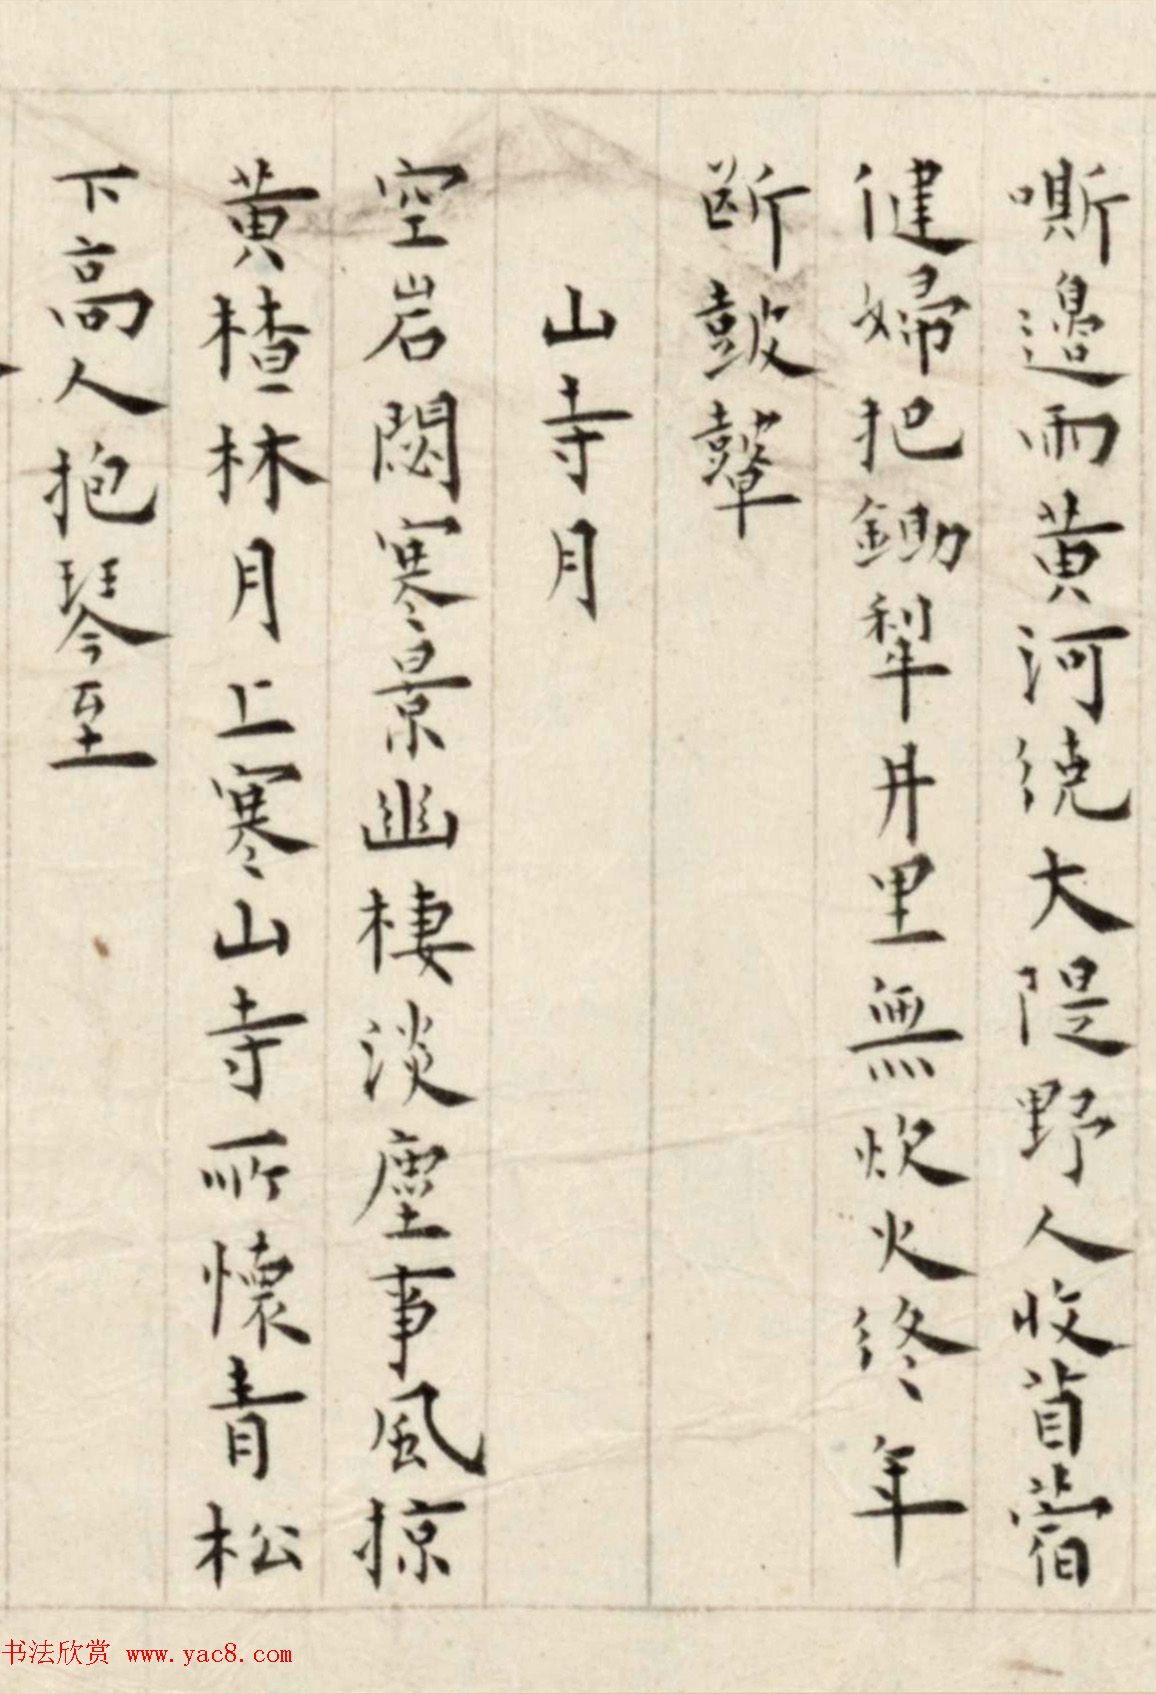 嘶邊雨黄河繞大隄野人收苜蓿
健婦把鋤犁井里無炊火終年
斷鼓鼙
山寺月
空岩閟寒景幽棲淡塵事風掠
黄楂林月上寒山寺所懷青松
下高人抱琴至
书法欣赏 www.yac8.com